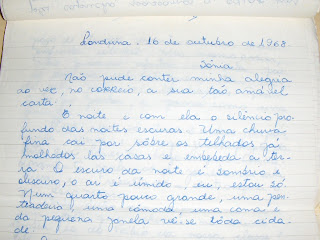 Londrina, 16 de outubro de 1968.
Sônia
Não pude conter minha alegria
ao ver, no correio, a sua tão amável
carta.
É noite e com ela o silêncio pro-
fundo das noites escuras. Uma chuva
fina cai por sôbre os telhados já
molhados das casas e embebeda a ter-
ra. O escuro da noite é sombrio e
obscuro, o ar é úmido, eu, estou só.
Num quarto pouco grande, uma pen-
teadeira, uma cômoda, uma cama e
da pequena janela vê-se tôda cida-
de.